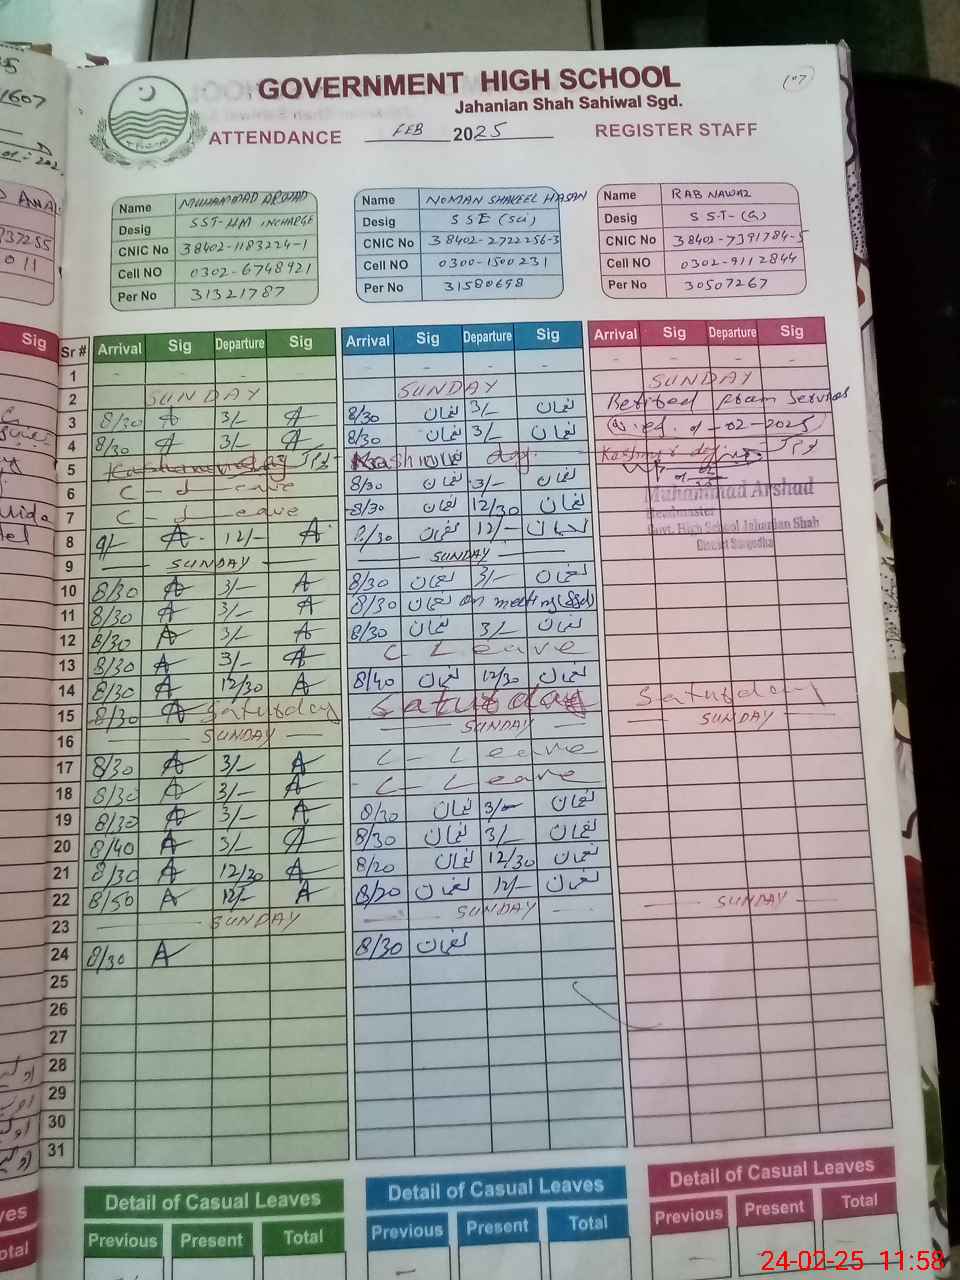 GOVERNMENT HIGH SCHOOL
Jahanian Shah Sahiwal Sgd.
ATTENDANCE FEB 2025 REGISTER STAFF
107
1607
Name MUHAMMAD ARSHAD
Desig SST-HM INCHARGE
CNIC No 38402-1183224-1
Cell NO 0302-6748921
Per No 31321787
Name NOMAN SHAKEEL HASAN
Desig SSE (Sci)
CNIC No 38402-2722256-3
Cell NO 0300-1500231
Per No 31580698
Name RAB NAWAZ
Desig SST-(G)
CNIC No 38402-7391784-5
Cell NO 0302-9112844
Per No 30507267
Sig
Sr # Arrival Sig Departure Sig Arrival Sig Departure Sig Arrival Sig Departure Sig
1 - - - - - - - - - - - -
2 SUNDAY SUNDAY SUNDAY
3 8/30 A 3/- A 8/30 نعمان 3/- نعمان Retired from Services
4 8/30 A 3/- A 8/30 نعمان 3/- نعمان -02-2025
5 Kashmir day Kashmir day
6 C - Leave 8/30 نعمان 3/- نعمان
7 C - Leave 8/30 نعمان 12/30 نعمان
8 9/- A 12/- A 8/30 نعمان 12/- نعمان
Muhammad Arshad
Headmaster
Govt. High School Jahanian Shah
District Sargodha
9 SUNDAY SUNDAY
10 8/30 A 3/- A 8/30 نعمان 3/- نعمان
11 8/30 A 3/- A 8/30 نعمان on meeting (Sgd)
12 8/30 A 3/- A 8/30 نعمان 3/- نعمان
13 8/30 A 3/- A C Leave
14 8/30 A 12/30 A 8/40 نعمان 12/30 نعمان
15 8/30 A Saturday Saturday Saturday
16 SUNDAY SUNDAY SUNDAY
17 8/30 A 3/- A C - Leave
18 8/30 A 3/- A C Leave
19 8/30 A 3/- A 8/30 نعمان 3/- نعمان
20 8/40 A 3/- A 8/30 نعمان 3/- نعمان
21 8/30 A 12/30 A 8/20 نعمان 12/30 نعمان
22 8/50 A 12/- A 8/20 نعمان 12/- نعمان
23 SUNDAY SUNDAY SUNDAY
24 8/30 A 8/30 نعمان
25
26
27
28
29
30
31
Detail of Casual Leaves Detail of Casual Leaves Detail of Casual Leaves
Previous Present Total Previous Present Total Previous Present Total
24-02-25 11:58